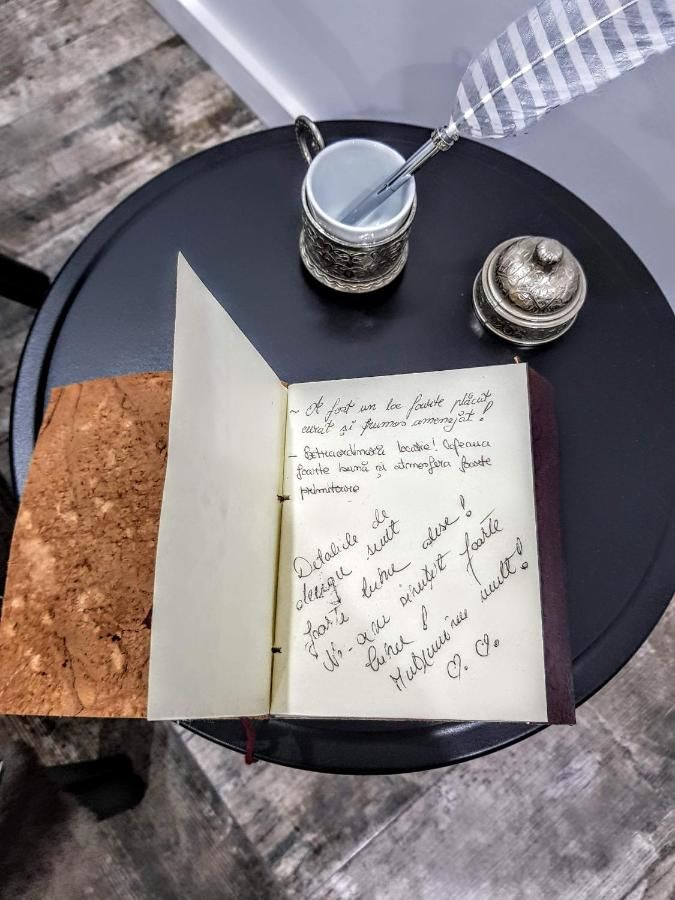 ~ A fost un loc foarte plăcut
curat și frumos amenajat!
- Extraordinară locație! Cafeaua
foarte bună și atmosfera foarte
primitoare
Detaliile de
design sunt
foarte bine alese!
Ne-am simțit foarte
bine! Mulțumim mult!